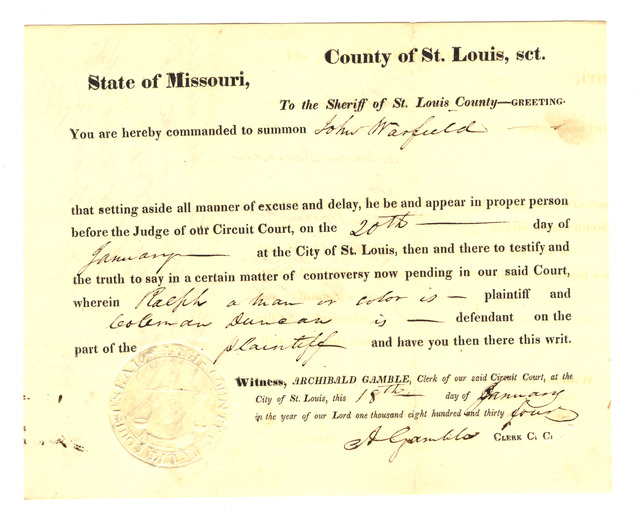 County of St. Louis, sct.
State of Missouri,
To the Sheriff of St. Louis County—GREETING.
You are hereby commanded to summon John Warfield
that setting aside all manner of excuse and delay, he be and appear in proper person
before the Judge of our Circuit Court, on the 20th day of
January at the City of St. Louis, then and there to testify and
the truth to say in a certain matter of controversy now pending in our said Court,
wherein Ralph a man of color is — plaintiff and
Coleman Duncan is — defendant on the
part of the plaintiff and have you then there this writ.
Witness, ARCHIBALD GAMBLE, Clerk of our said Circuit Court, at the
City of St. Louis, this 18th day of January
in the year of our Lord one thousand eight hundred and thirty four
A Gamble CLERK C. C.